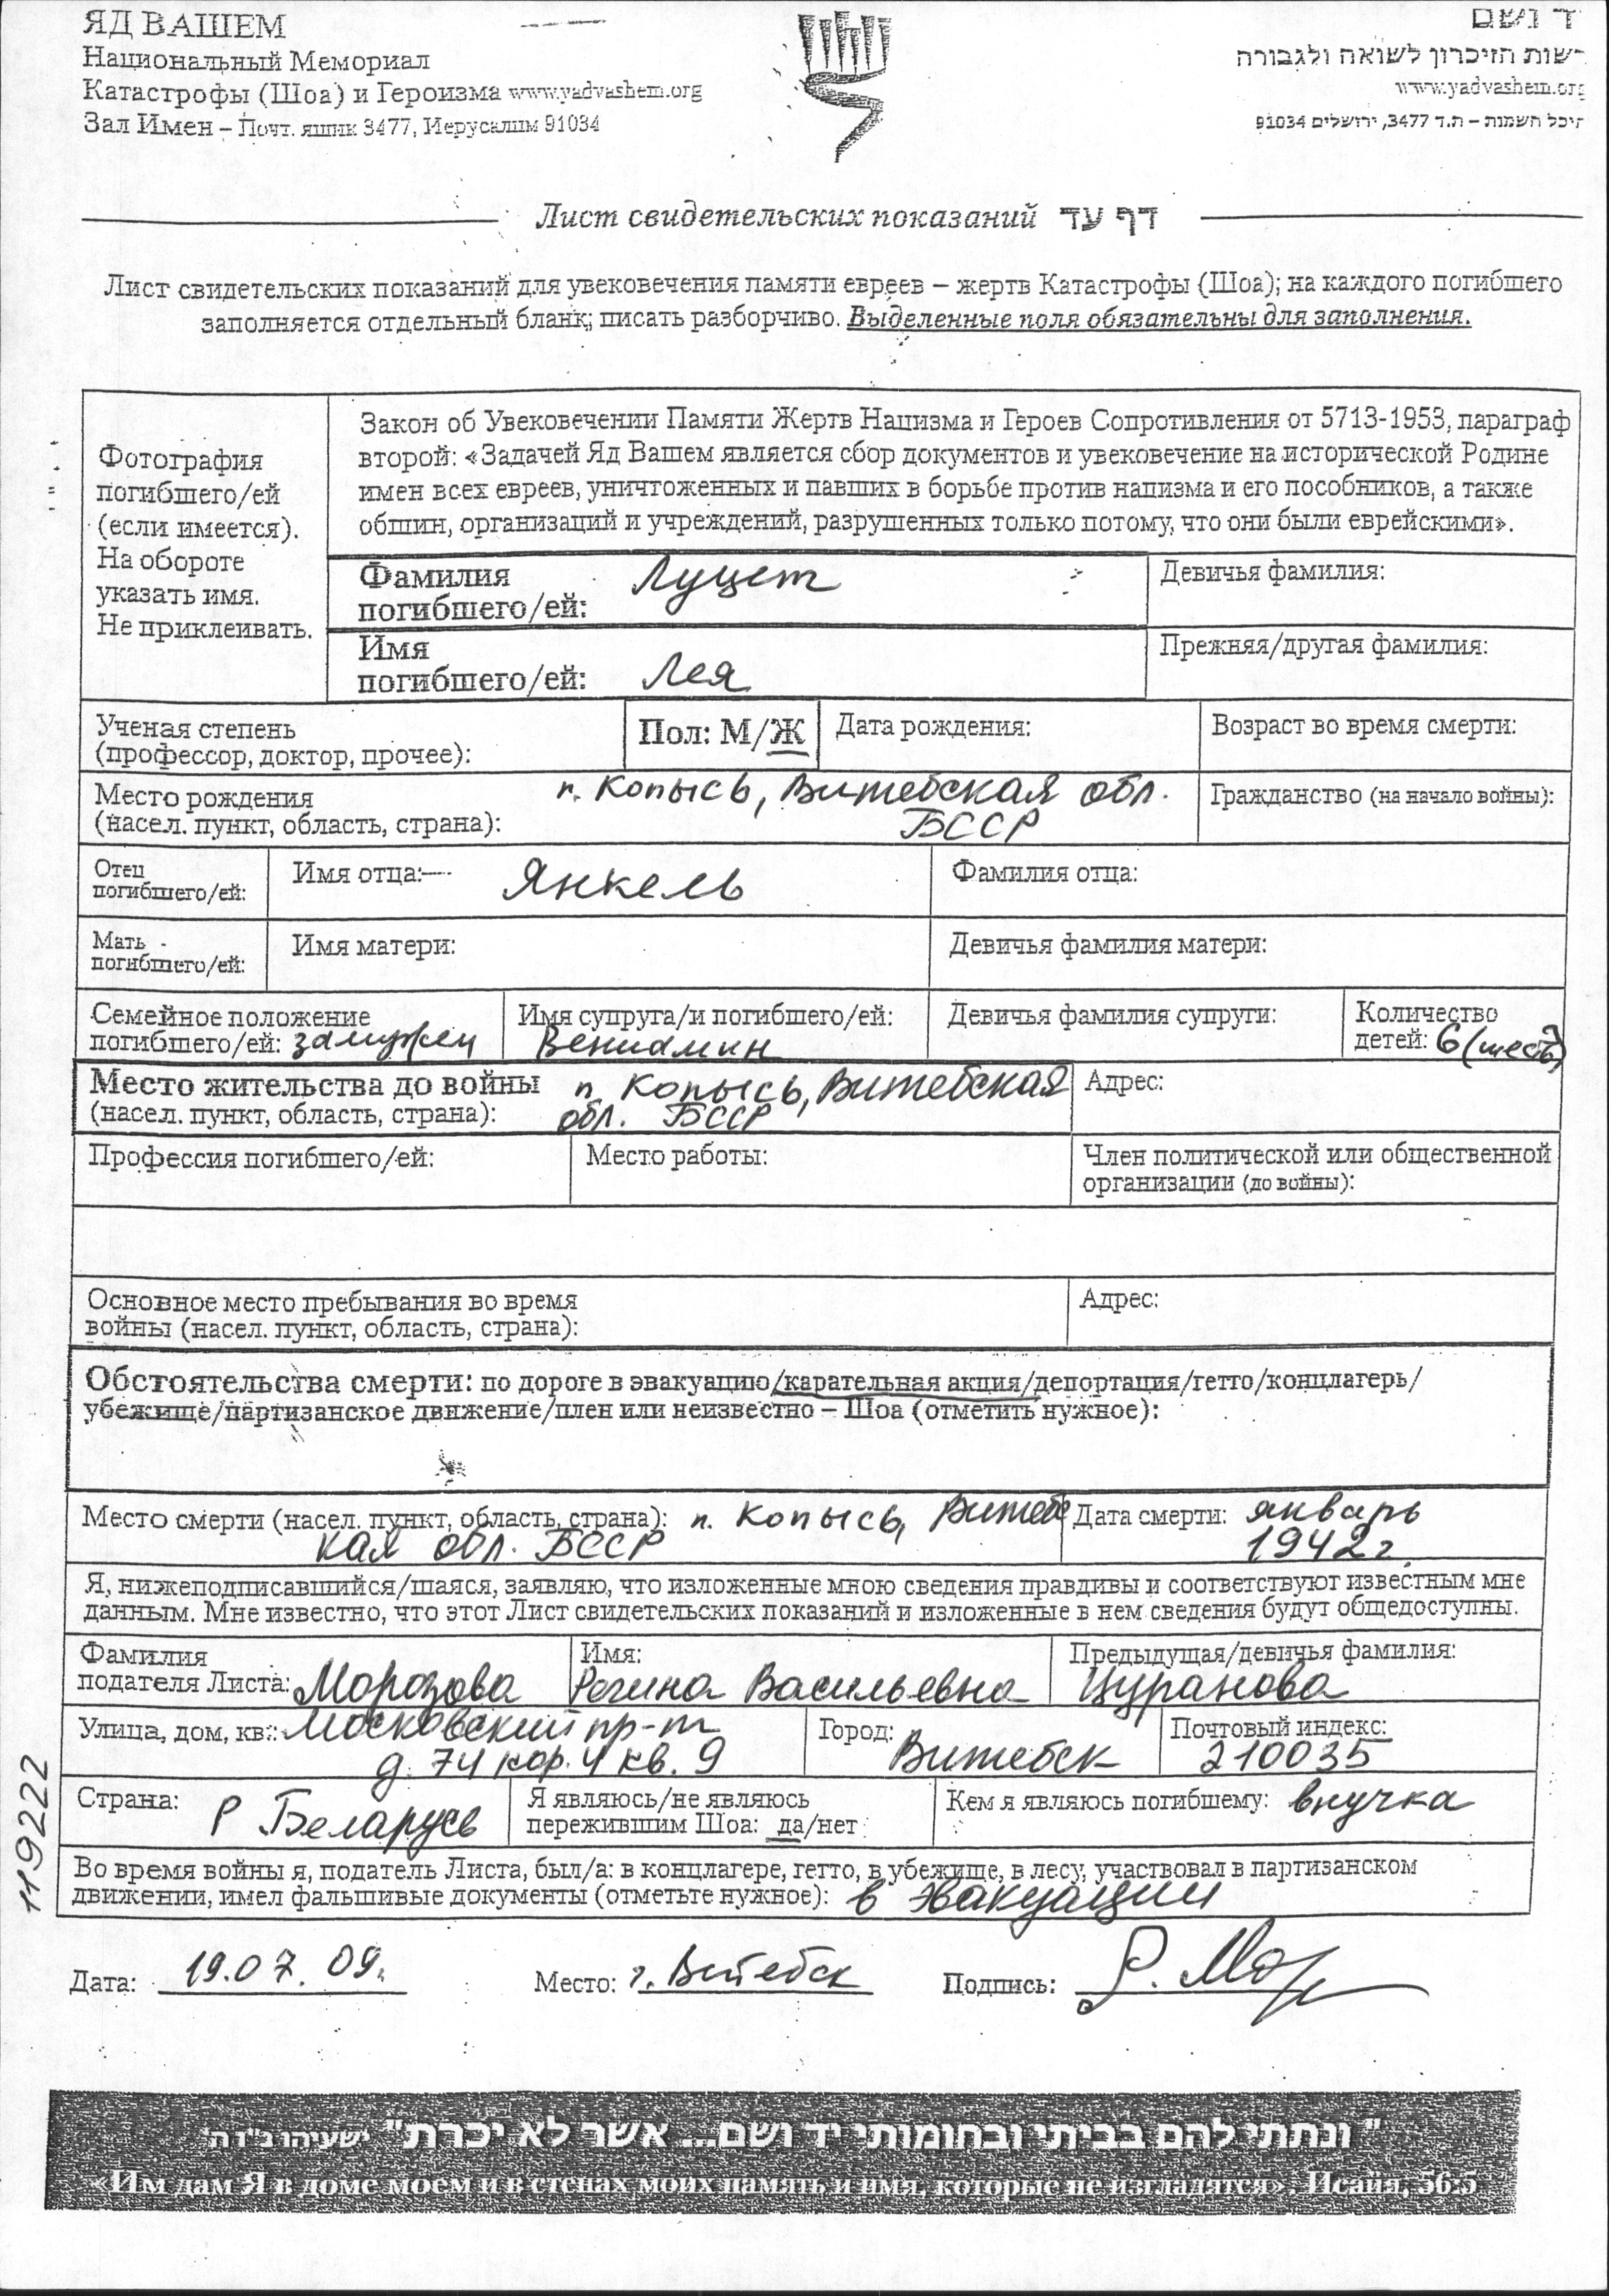 ЯД ВАШЕМ
Национальный Мемориал
Катастрофы (Шоа) и Героизма www.yadvashem.org
Зал Имен – Почт. ящик 3477, Иерусалим 91034
ד ושם
שות הזיכרון לשואה ולגבורה
www.yadvashem.org
היכל השמות – ת.ד 3477, ירושלים 91034
Лист свидетельских показаний דף עד
Лист свидетельских показаний для увековечения памяти евреев – жертв Катастрофы (Шоа); на каждого погибшего
заполняется отдельный бланк; писать разборчиво. Выделенные поля обязательны для заполнения.
Фотография
погибшего/ей
(если имеется).
На обороте
указать имя.
Не приклеивать.
Закон об Увековечении Памяти Жертв Нацизма и Героев Сопротивления от 5713-1953, параграф
второй: «Задачей Яд Вашем является сбор документов и увековечение на исторической Родине
имен всех евреев, уничтоженных и павших в борьбе против нацизма и его пособников, а также
общин, организаций и учреждений, разрушенных только потому, что они были еврейскими».
Фамилия
погибшего/ей: Луцет
Девичья фамилия:
Имя
погибшего/ей: Лея
Прежняя/другая фамилия:
Ученая степень
(профессор, доктор, прочее):
Пол: М/Ж
Дата рождения:
Возраст во время смерти:
Место рождения
(насел. пункт, область, страна):
п. Копысь, Витебская обл.
БССР
Гражданство (на начало войны):
Отец
погибшего/ей:
Имя отца: Янкель
Фамилия отца:
Мать
погибшего/ей:
Имя матери:
Девичья фамилия матери:
Семейное положение
погибшего/ей: замужем
Имя супруга/и погибшего/ей:
Вениамин
Девичья фамилия супруги:
Количество
детей: 6 (шесть)
Место жительства до войны
(насел. пункт, область, страна):
п. Копысь, Витебская
обл. БССР
Адрес:
Профессия погибшего/ей:
Место работы:
Член политической или общественной
организации (до войны):
Основное место пребывания во время
войны (насел. пункт, область, страна):
Адрес:
Обстоятельства смерти: по дороге в эвакуацию/карательная акция/депортация/гетто/концлагерь/
убежище/партизанское движение/плен или неизвестно – Шоа (отметить нужное):
Место смерти (насел. пункт, область, страна): п. Копысь, Витебс
кая обл. БССР
Дата смерти: январь
1942г.
Я, нижеподписавшийся/шаяся, заявляю, что изложенные мною сведения правдивы и соответствуют известным мне
данным. Мне известно, что этот Лист свидетельских показаний и изложенные в нем сведения будут общедоступны.
Фамилия
подателя Листа: Морозова
Имя:
Регина Васильевна
Предыдущая/девичья фамилия:
Цуранова
Улица, дом, кв.: Московский пр-т
д. 74 кор. 4 кв. 9
Город:
Витебск
Почтовый индекс:
210035
Страна: Р Беларусь
Я являюсь/не являюсь
пережившим Шоа: да/нет
Кем я являюсь погибшему: внучка
Во время войны я, податель Листа, был/а: в концлагере, гетто, в убежище, в лесу, участвовал в партизанском
движении, имел фальшивые документы (отметьте нужное): в эвакуации
119222
Дата: 19.07.09.
Место: г. Витебск
Подпись: Р. Мор
"ונתתי להם בביתי ובחומותי יד ושם... אשר לא יכרת" ישעיהו נ"ו ה'
«Им дам Я в доме моем и в стенах моих память и имя, которые не изгладятся». Исайя, 56:5